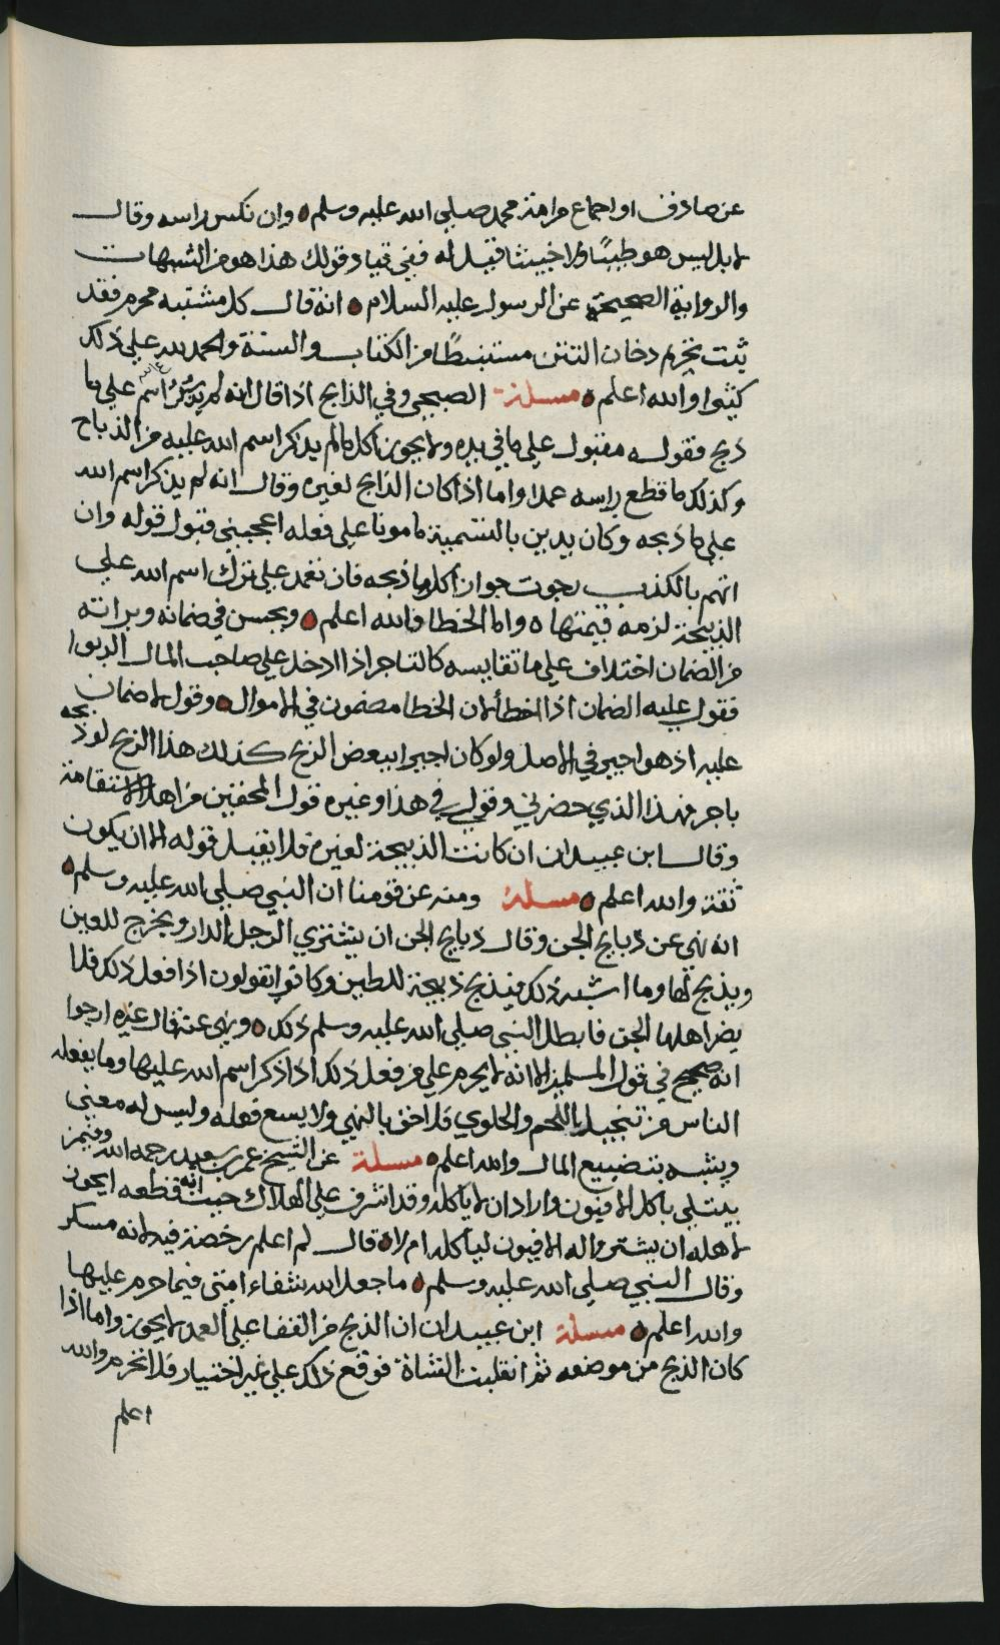 عن صادق او اجماع من امة محمد صلى الله عليه وسلم وان نكس راسه وقال
لا بل ليس هو طيبًا ولا خبيثا فقيل له ففي قياد قولك هذا هو من الشبهات
والرواية الصحيحة عن الرسول عليه السلام انه قال كل مشتبه محرم فقد
ثبت تحريم دخان التتن مستنبطًا من الكتاب والسنة والحمد لله على ذلك
كثيرا والله اعلم مسئلة الصبحي وفي الذابح اذا قال انه لم يذكر اسم الله على ما
ذبح فقوله مقبول على ما في يده ولا يجوز اكل ما لم يذكر اسم الله عليه من الذباح
وكذلك ما قطع راسه عمدا واما اذا كان الذابح لغيره وقال انه لم يذكر اسم الله
على ما ذبحه وكان يدين بالتسمية مامونا على فعله اعجبني قبول قوله وان
اتهم بالكذب رجوت جواز اكل ما ذبحه فان تعمد على ترك اسم الله على
الذبيحة لزمه قيمتها واما الخطا فالله اعلم ويحسن في ضمانه وبراته
من الضمان اختلاف على ما تقايسه كالتاجر اذا ادخل على صاحب المال الربوا
فقول عليه الضمان اذا اخطأ لان الخطا مضمون في الاموال وقول لا ضمان
عليه اذ هو اجير في الاصل ولو كان اجيرا ببعض الربح كذلك هذا الربح لو ذبحه
باجر فهذا الذي حضرني وقولي في هذا وغيره قول المحقين من اهل الاستقامة
وقال ابن عبيدان ان كانت الذبيحة لغيره فلا يقبل قوله الا ان يكون
ثقة والله اعلم مسئلة ومنه عن قومنا ان النبي صلى الله عليه وسلم
انه نهى عن ذبايح الجن وقال ذبايح الجن ان يشتري الرجل الدار ويخرج للعين
ويذبح لها وما اشبه ذلك فيذبح ذبيحة للطين وكانوا يقولون اذا فعل ذلك فلا
يضر اهلها الجن فابطل النبي صلى الله عليه وسلم ذلك ونهى عنه قال غيره ارجوا
انه صحيح في قول المسلمين الا انه لا يحرم على من فعل ذلك اذا ذكر اسم الله عليها وما يفعله
الناس من باللحم والحلوى فلاحق بالنهي ولا يسع فعله وليس له معنى
ويشبه بتضييع المال والله اعلم مسئلة عن الشيخ عمر بن سعيد رحمه الله وفيمن
يبتلى باكل الافيون واراد ان لا ياكله وقد اشرف على الهلاك حيث انه قطعه ايجوز
لاهله ان يشتروا له الافيون لياكله ام لا قال لم اعلم رخصة فيه لانه مسكر
وقال النبي صلى الله عليه وسلم ما جعل الله شفاء امتي فيما حرم عليها
والله اعلم مسئلة ابن عبيدان ان الذبح من القفا على العمد لا يجوز واما اذا
كان الذبح من موضعه ثم انقلبت الشاة فوقع ذلك على غير اختيار فلا تحرم والله
اعلم